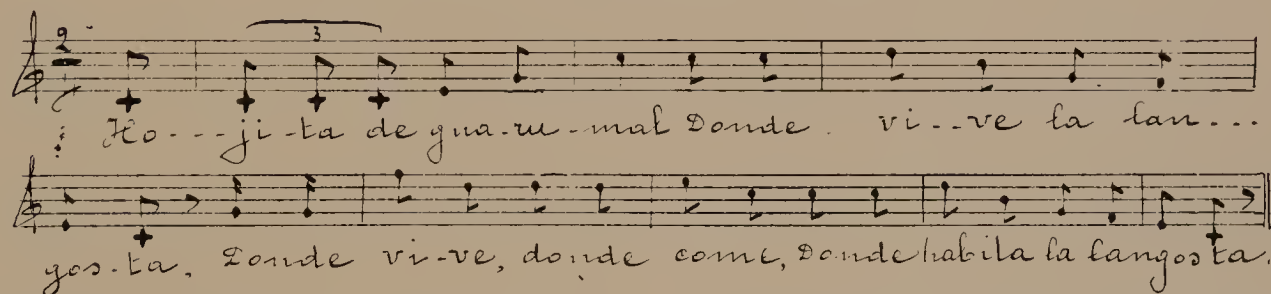 2 3
Ho---ji-ta de gua-ru-mal Donde vi--ve la lan---
gos-ta, Donde vi-ve, donde come, Donde habita la langosta.